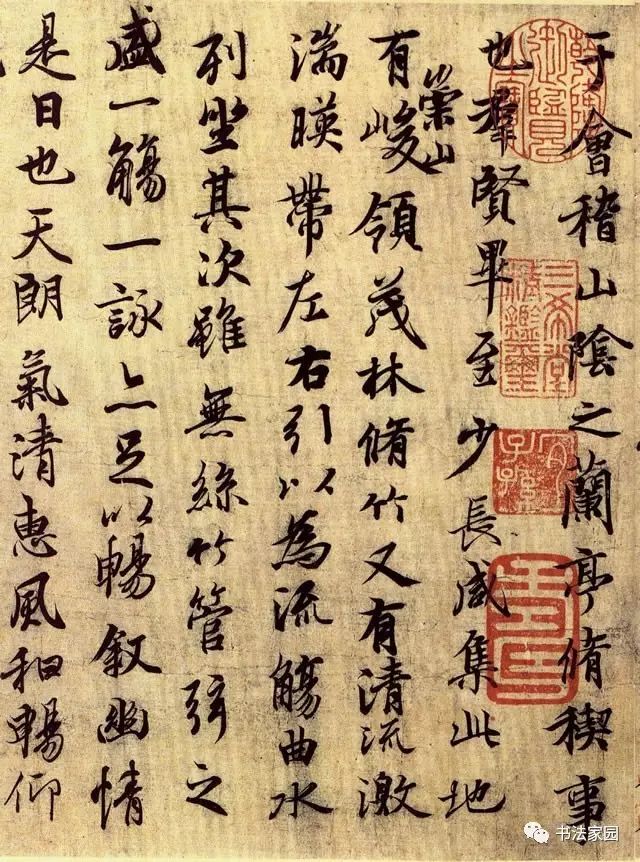 于會稽山陰之蘭亭脩稧事
也羣賢畢至少長咸集此地
有崇山峻領茂林脩竹又有清流激
湍暎帶左右引以為流觴曲水
列坐其次雖無絲竹管弦之
盛一觴一詠亦足以暢叙幽情
是日也天朗氣清惠風和暢仰
三希堂精鑑璽
宜子孫
书法家园